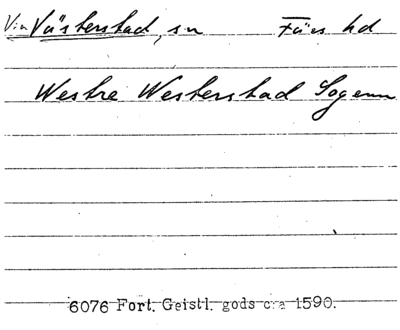 Västerstad, sn Färs hd
Westre Westerstad Sogenn
6076 Fort. Geistl. gods c:a 1590.